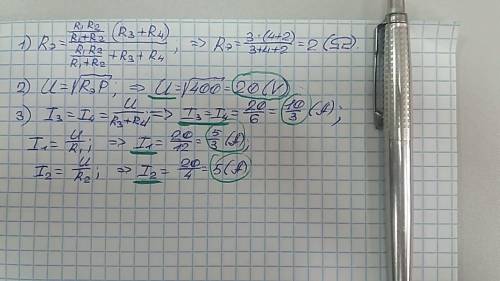 1) Rэ = (R₁R₂/(R₁+R₂) (R₃+R₄)) / (R₁R₂/(R₁+R₂) + R₃ + R₄); => Rэ = 3·(4+2)/(3+4+2) = 2 (Ω).
2) U = √(RэP); => U = √400 = 20(V)
3) I₃ = I₄ = U/(R₃+R₄) => I₃ = I₄ = 20/6 = 10/3 (A);
I₁ = U/R₁; => I₁ = 20/12 = 5/3 (A)
I₂ = U/R₂; => I₂ = 20/4 = 5(A)